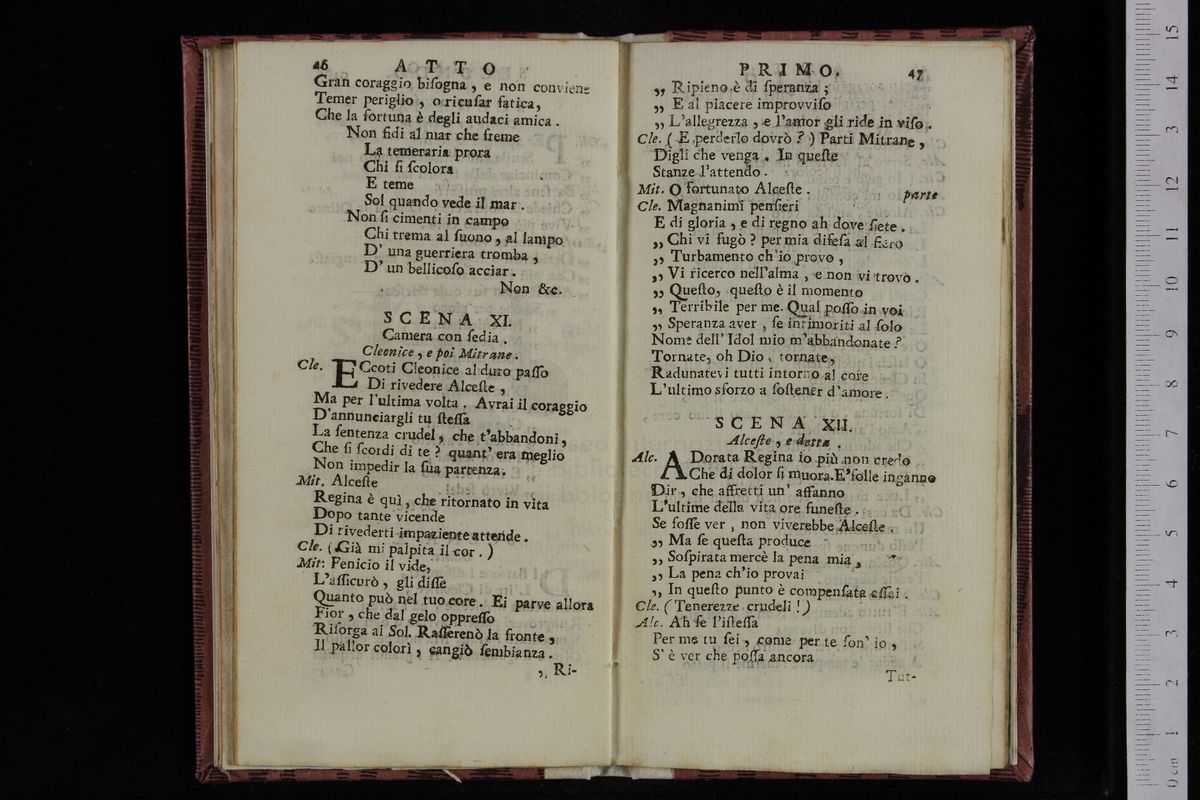 46 ATTO
Gran coraggio biſogna, e non conviene
Temer periglio, o ricuſar fatica,
Che la fortuna è degli audaci amica.
Non fidi al mar che freme
La temeraria prora
Chi ſi ſcolora
E teme
Sol quando vede il mar.
Non ſi cimenti in campo
Chi trema al ſuono, al lampo
D' una guerriera tromba,
D' un bellicoſo acciar.
Non &c.
SCENA XI.
Camera con ſedia.
Cleonice, e poi Mitrane.
Cle. ECcoti Cleonice al duro paſſo
Di rivedere Alceſte,
Ma per l'ultima volta. Avrai il coraggio
D'annunciargli tu ſteſſa
La ſentenza crudel, che t'abbandoni,
Che ſi ſcordi di te? quant' era meglio
Non impedir la ſua partenza.
Mit. Alceſte
Regina è quì, che ritornato in vita
Dopo tante vicende
Di rivederti impaziente attende.
Cle. (Già mi palpita il cor.)
Mit: Fenicio il vide,
L'aſſicurò, gli diſſe
Quanto può nel tuo core. Ei parve allora
Fior, che dal gelo oppreſſo
Riſorga al Sol. Raſſerenò la fronte,
Il pallor colorì, cangiò ſembianza.
„ Ri-
PRIMO. 47
„ Ripieno è di ſperanza;
„ E al piacere improvviſo
„ L'allegrezza, e l'amor gli ride in viſo.
Cle. (E perderlo dovrò?) Parti Mitrane,
Digli che venga. In queſte
Stanze l'attendo.
Mit. O fortunato Alceſte. parte
Cle. Magnanimi penſieri
E di gloria, e di regno ah dove ſiete.
„ Chi vi fugò? per mia difeſa al fiero
„ Turbamento ch'io provo,
„ Vi ricerco nell'alma, e non vi trovo.
„ Queſto, queſto è il momento
„ Terribile per me. Qual poſſo in voi
„ Speranza aver, ſe intimoriti al ſolo
Nome dell' Idol mio m'abbandonate?
Tornate, oh Dio, tornate,
Radunatevi tutti intorno al core
L'ultimo sforzo a ſoſtener d'amore.
SCENA XII.
Alceſte, e detta.
Alc. ADorata Regina io più non credo
Che di dolor ſi muora. E' folle inganno
Dir, che affretti un' affanno
L'ultime della vita ore funeſte.
Se foſſe ver, non viverebbe Alceſte.
„ Ma ſe queſta produce
„ Soſpirata mercè la pena mia,
„ La pena ch'io provai
„ In queſto punto è compenſata aſſai.
Cle. (Tenerezze crudeli!)
Alc. Ah ſe l'iſteſſa
Per me tu ſei, come per te ſon' io,
S' è ver che poſſa ancora
Tut-
0 cm 1 2 3 4 5 6 7 8 9 10 11 12 13 14 15